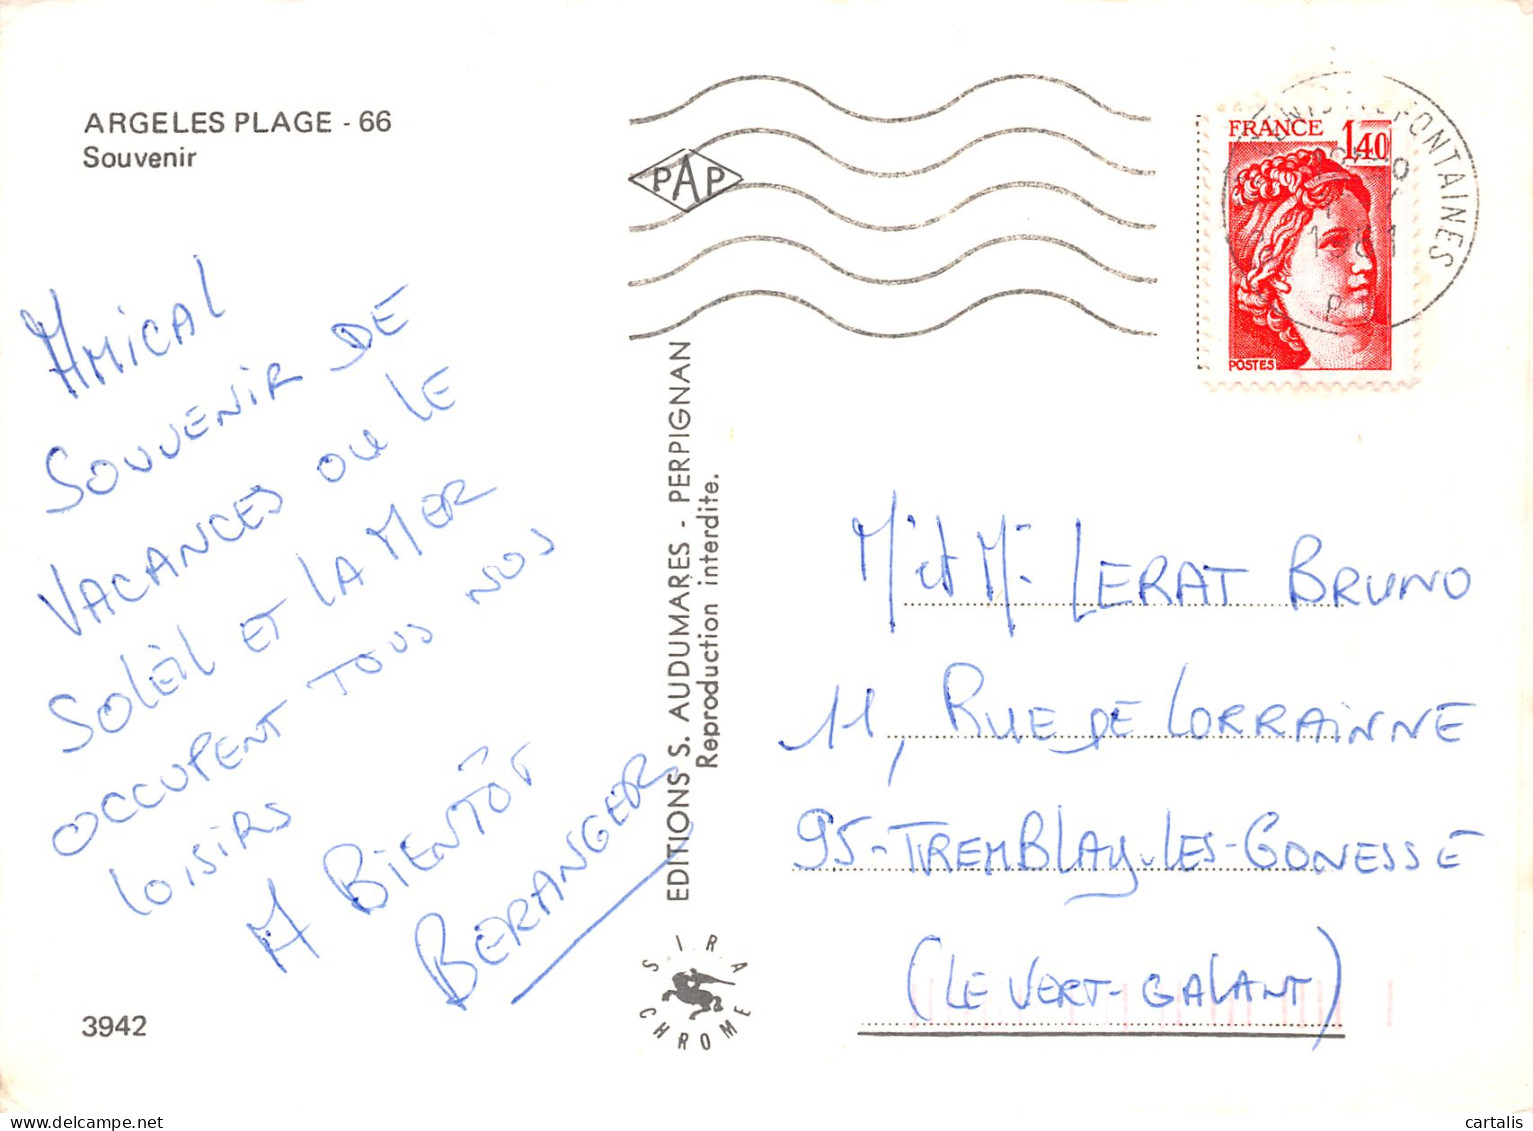 ARGELES PLAGE - 66
Souvenir
AMICAL
SOUVENIR DE
VACANCES OU LE
SOLÈIL ET LA MER
OCCUPENT TOUS NOS
LOISIRS
A BIENTÔT
BERANGER
3942
PAP
EDITIONS S. AUDUMARES - PERPIGNAN
Reproduction interdite.
SIRA
CHROME
FRANCE 1,40
POSTES
FONTAINES
M et M. LERAT BRUNO
11, RUE DE LORRAINNE
95-TREMBLAY-LES-GONESSE
(LE VERT-GALANT)
cartalis